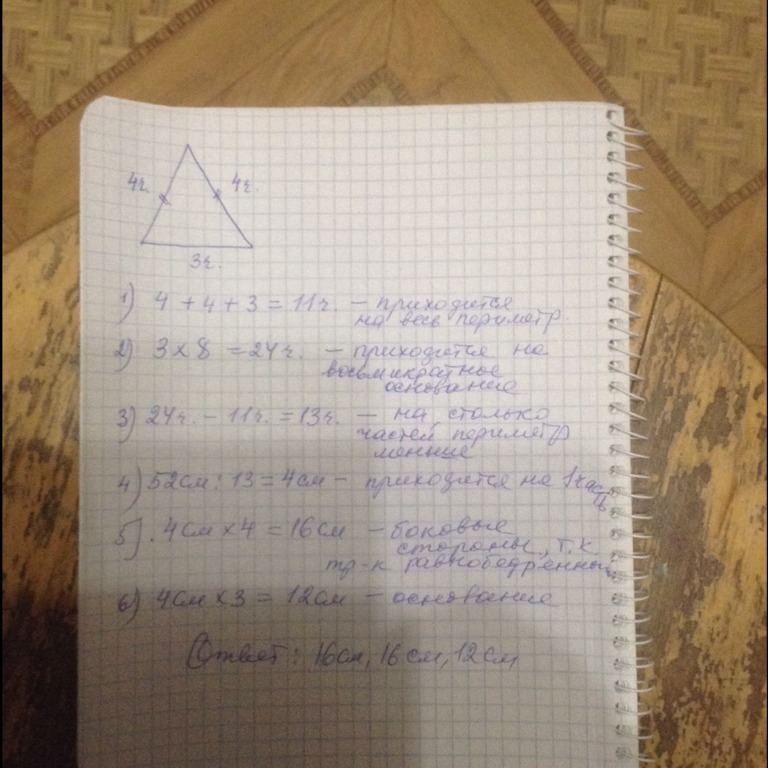 4ч. 4ч.
3ч.
1) 4 + 4 + 3 = 11ч. – приходится
на весь периметр
2) 3 х 8 = 24ч. – приходится на
восьмикратное
основание
3) 24ч. – 11ч. = 13ч. – на столько
частей периметр
меньше
4) 52см : 13 = 4см – приходится на 1 часть
5) 4см х 4 = 16см – боковые
стороны, т.к.
тр-к равнобедренный
6) 4см х 3 = 12см – основание
Ответ: 16см, 16см, 12см